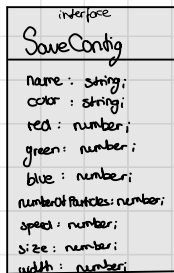 interface
SaveConfig
name: string;
color: string;
red: number;
green: number;
blue: number;
numberOfParticles: number;
speed: number;
size: number;
width: number;